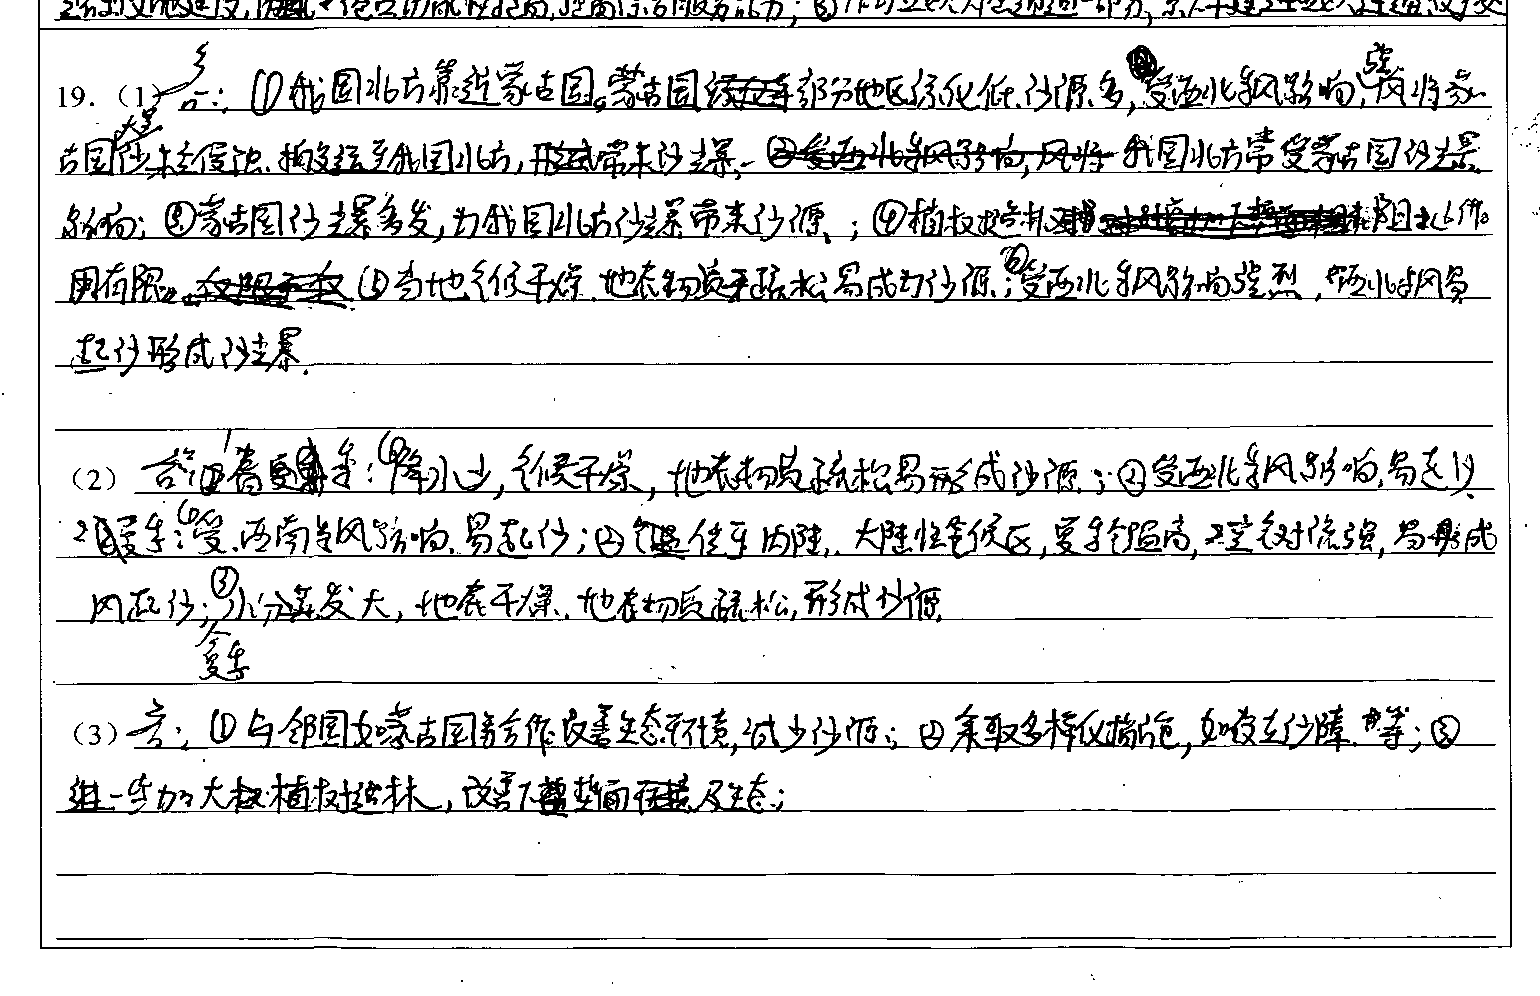 19.（1）答：①我国北方靠近蒙古国。蒙古国部分地区绿化低、沙源多，受西北季风影响，强风将蒙
古国大量沙尘侵蚀、搬运至我国北方，带来沙尘暴、我国北方常受蒙古国沙尘暴
影响；③蒙古国沙尘暴多发，为我国北方沙尘暴带来沙源、；④植被
用有限。⑤当地气候干燥、地表物质疏松易成为沙源；受西北季风影响强烈，西北季风易
起沙形成沙尘暴.
（2）春季：①降水少，气候干燥，地表物质疏松易形成沙源；②受西北季风影响，易起沙
夏季：①受西南季风影响、易起沙；②位于内陆，大陆性气候区，夏季气温高，空气对流强，易形成
风起沙；③水分蒸发大，地表干燥、地表物质疏松，形成沙源
夏季
（3）答：①与邻国如蒙古国等合作改善生态环境，减少沙源；②采取多样化措施，如设立沙障等；③
进一步加大植树造林，改善下垫面及生态；